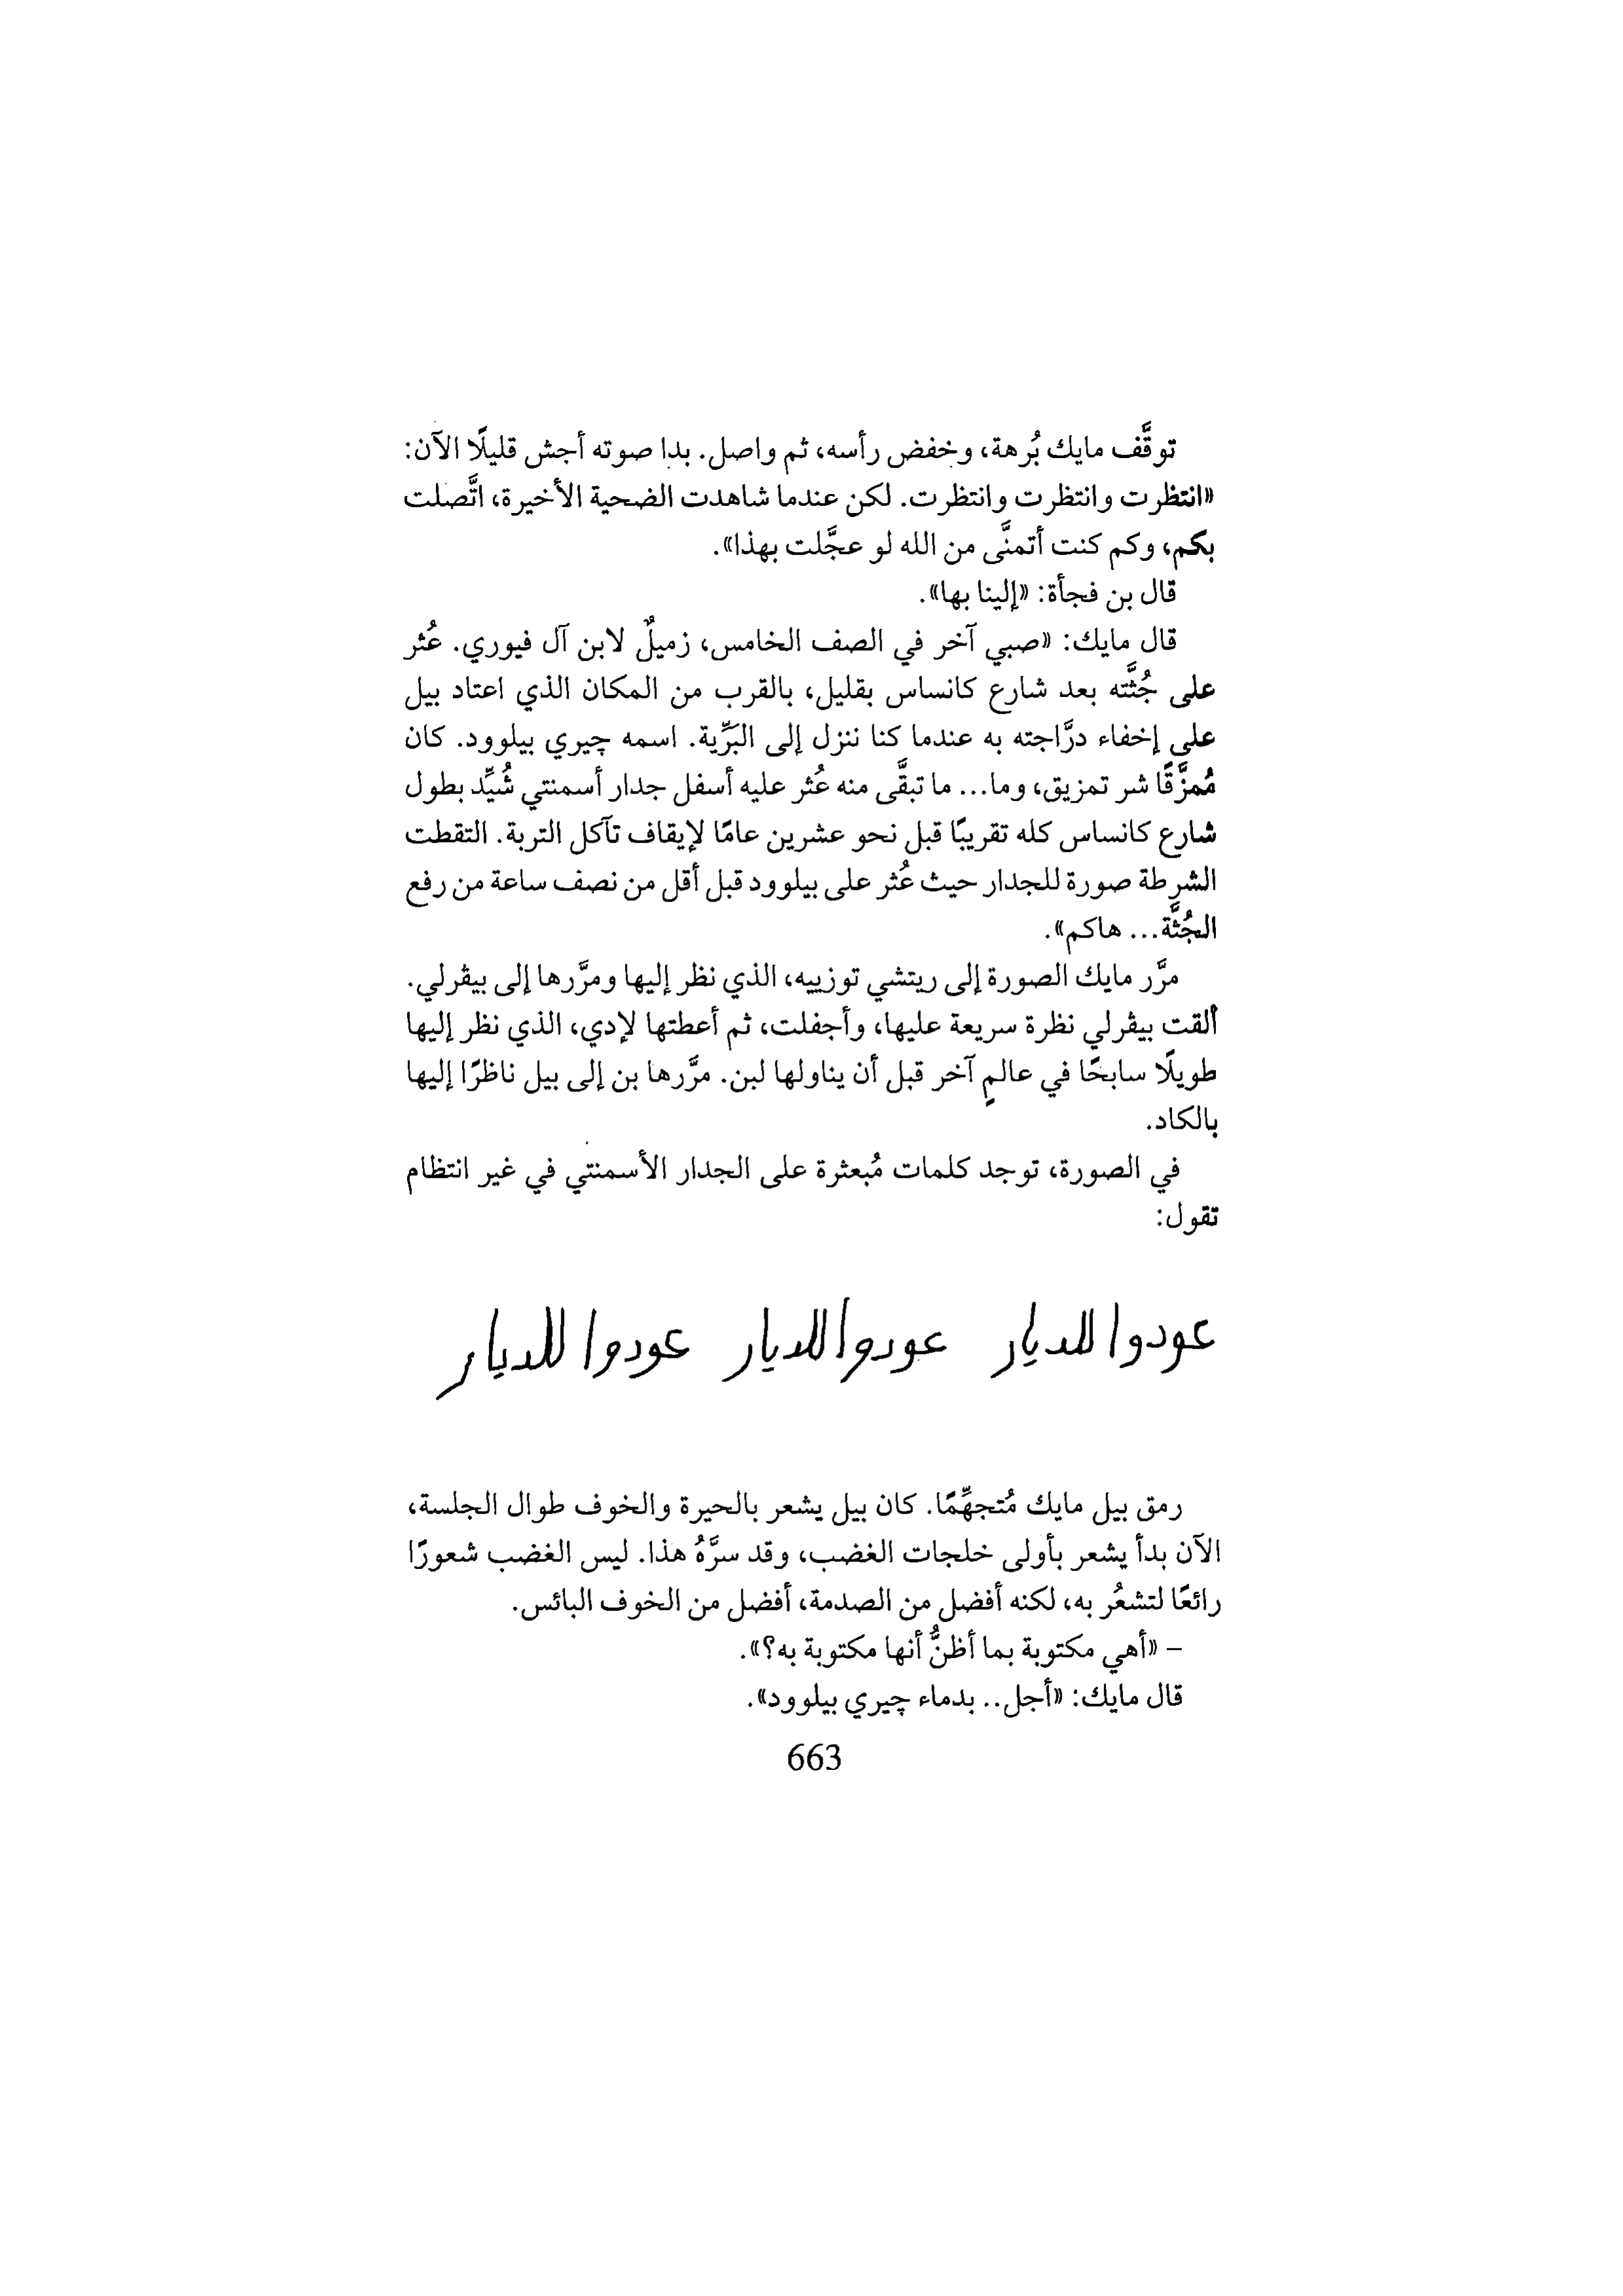 توقَّف مايك بُرهة، وخفض رأسه، ثم واصل. بدا صوته أجش قليلًا الآن:
«انتظرت وانتظرت وانتظرت. لكن عندما شاهدت الضحية الأخيرة، اتَّصلت
بكم، وكم كنت أتمنَّى من الله لو عجَّلت بهذا».
قال بن فجأة: «إلينا بها».
قال مايك: «صبي آخر في الصف الخامس، زميلٌ لابن آل فيوري. عُثر
على جُثَّته بعد شارع كانساس بقليل، بالقرب من المكان الذي اعتاد بيل
على إخفاء درَّاجته به عندما كنا ننزل إلى البَرِّية. اسمه چيري بيلوود. كان
مُمزَّقًا شر تمزيق، وما... ما تبقَّى منه عُثر عليه أسفل جدار أسمنتي شُيِّد بطول
شارع كانساس كله تقريبًا قبل نحو عشرين عامًا لإيقاف تآكل التربة. التقطت
الشرطة صورة للجدار حيث عُثر على بيلوود قبل أقل من نصف ساعة من رفع
الجُثَّة... هاكم».
مرَّر مايك الصورة إلى ريتشي توزييه، الذي نظر إليها ومرَّرها إلى بيڤرلي.
ألقت بيڤرلي نظرة سريعة عليها، وأجفلت، ثم أعطتها لإدي، الذي نظر إليها
طويلًا سابحًا في عالمٍ آخر قبل أن يناولها لبن. مرَّرها بن إلى بيل ناظرًا إليها
بالكاد.
في الصورة، توجد كلمات مُبعثرة على الجدار الأسمنتي في غير انتظام
تقول:
عودوا للديار عودوا للديار عودوا للديار
رمق بيل مايك مُتجهِّمًا. كان بيل يشعر بالحيرة والخوف طوال الجلسة،
الآن بدأ يشعر بأولى خلجات الغضب، وقد سرَّهُ هذا. ليس الغضب شعورًا
رائعًا لتشعُر به، لكنه أفضل من الصدمة، أفضل من الخوف البائس.
– «أهي مكتوبة بما أظنُّ أنها مكتوبة به؟».
قال مايك: «أجل.. بدماء چيري بيلوود».
663